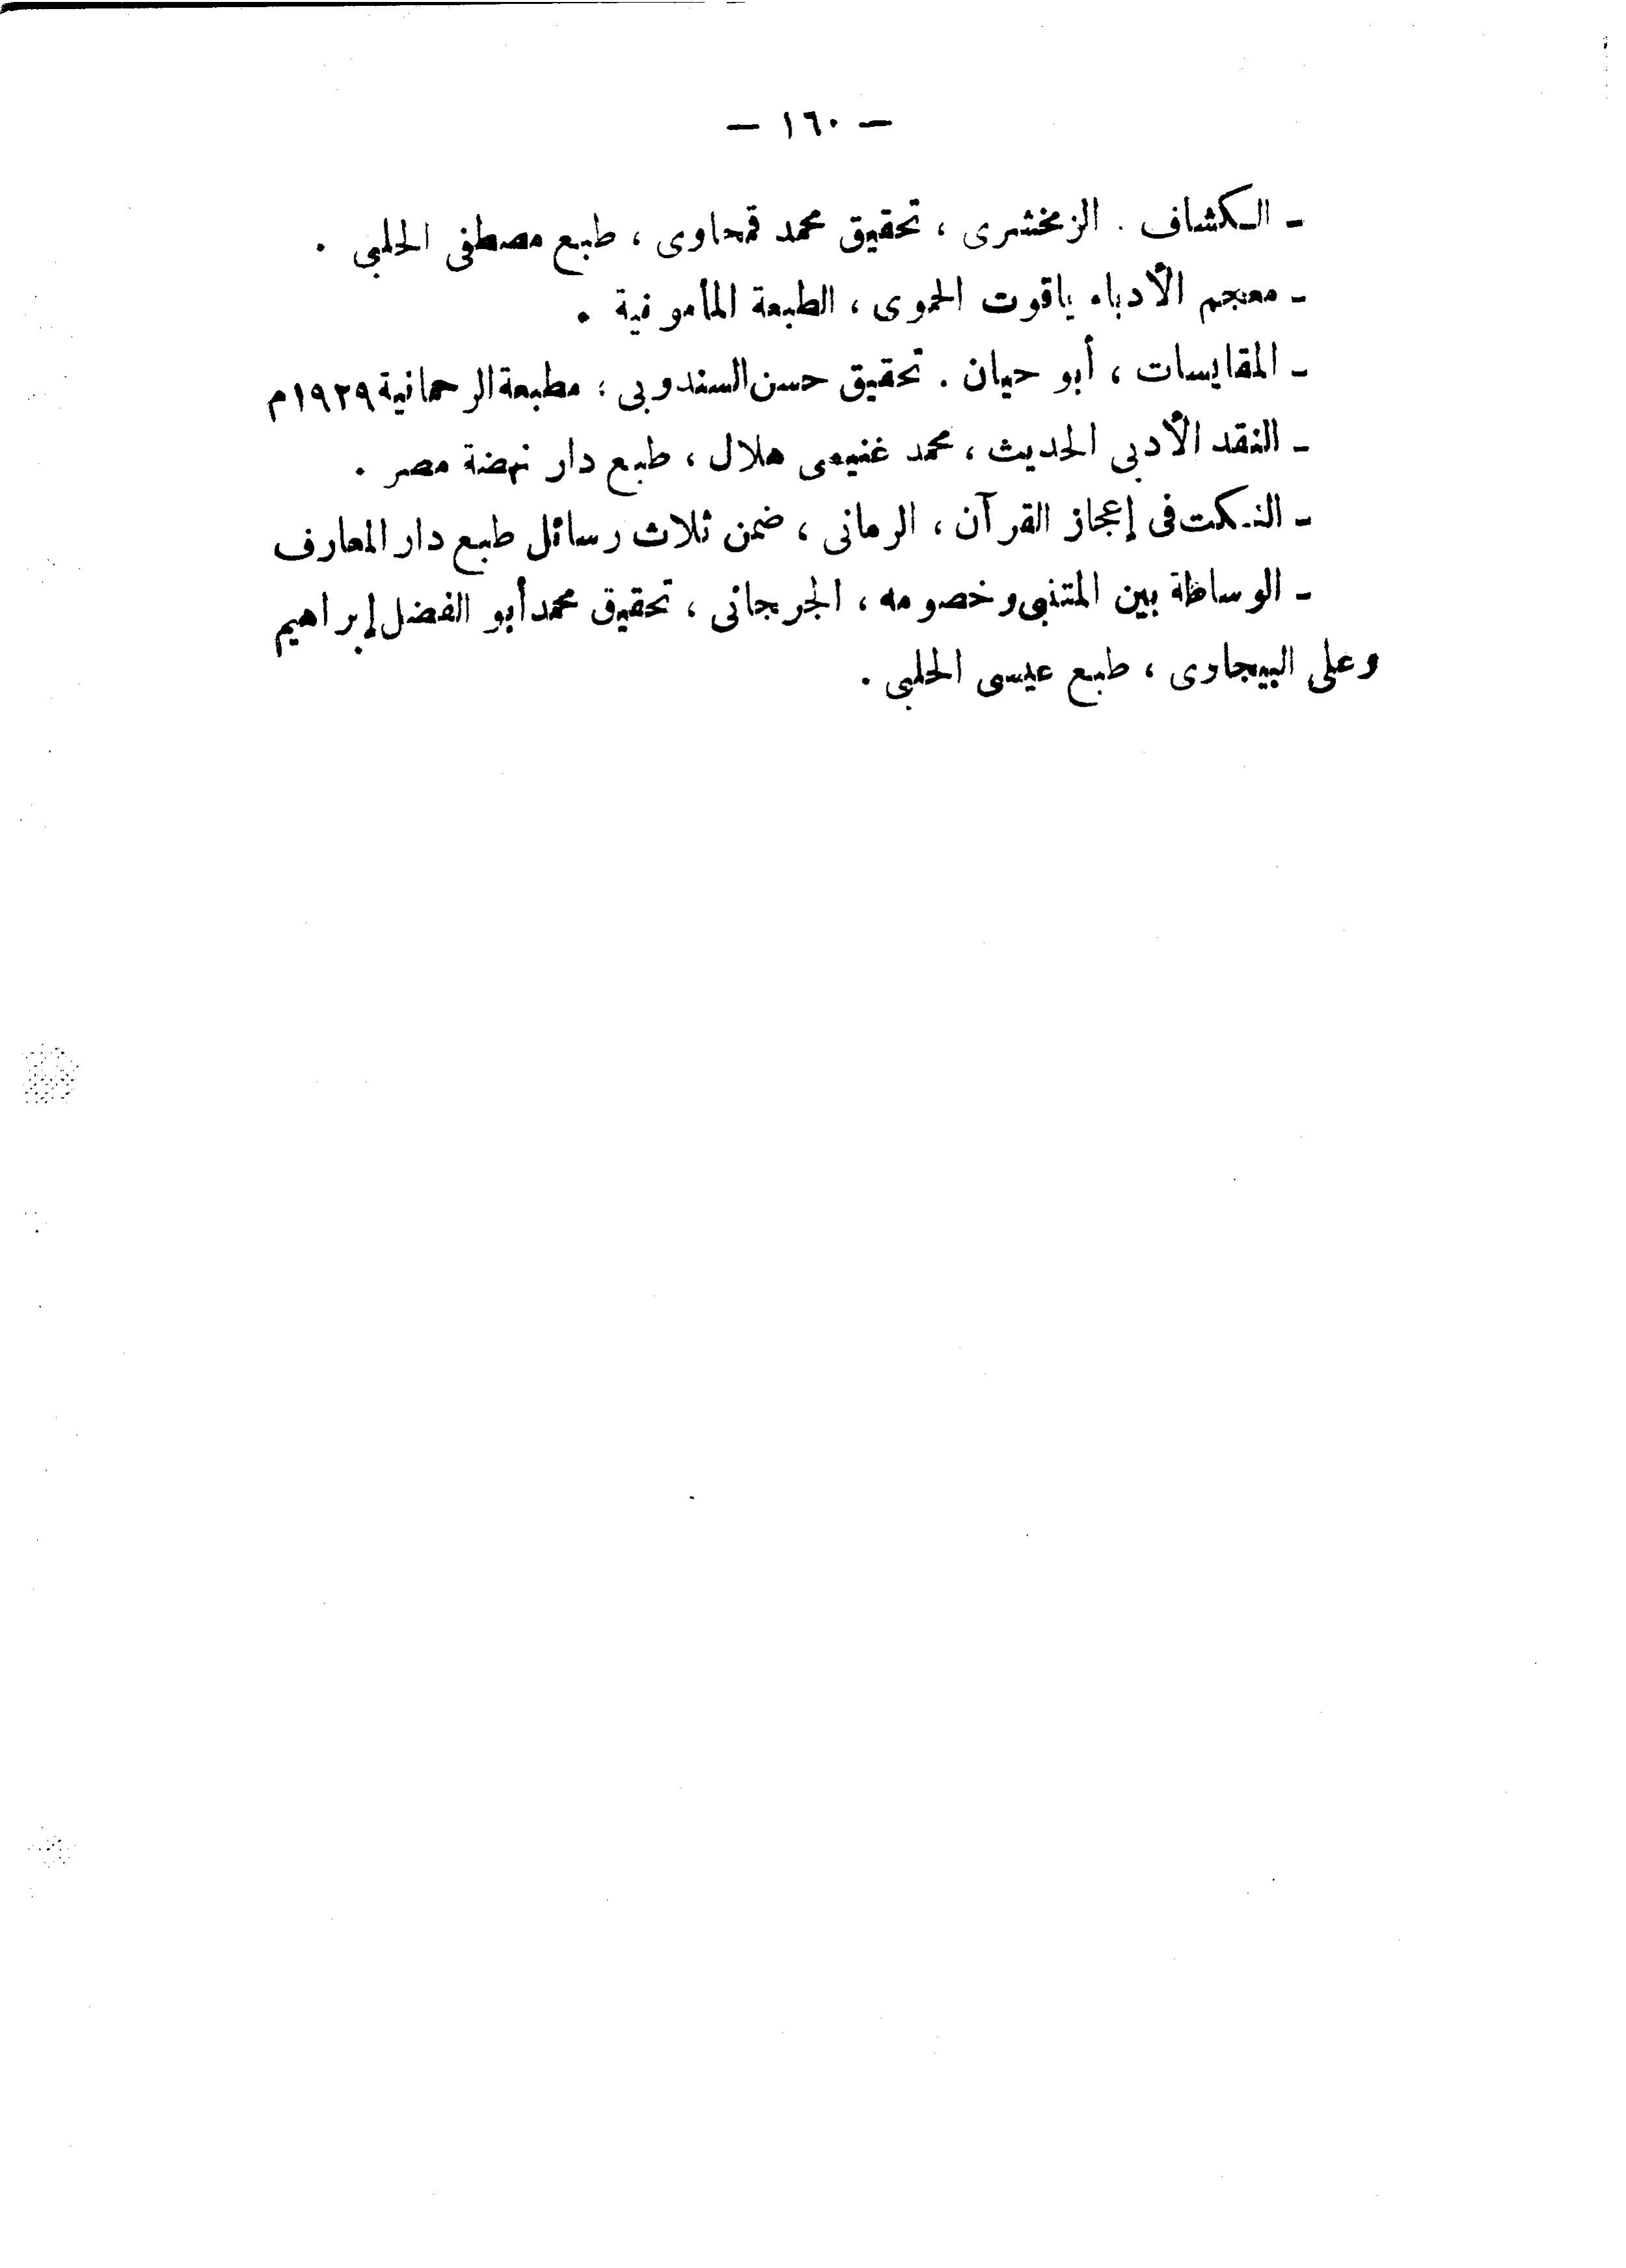 — ١٦٠ —
- الكشاف . الزمخشرى ، تحقيق محمد قمحاوى ، طبع مصطفى الحلبى .
- معجم الأدباء ياقوت الحموى ، الطبعة المأمونية .
- المقايسات ، أبو حيان . تحقيق حسن السندوبى ؛ مطبعة الرحمانية ١٩٢٩م
- النقد الأدبى الحديث ، محمد غنيمى هلال ، طبع دار نهضة مصر .
- النكت فى إعجاز القرآن ، الرمانى ، ضمن ثلاث رسائل طبع دار المعارف
- الوساطة بين المتنبى وخصومه ، الجرجانى ، تحقيق محمد أبو الفضل إبراهيم
وعلى البيجاوى ، طبع عيسى الحلبى .